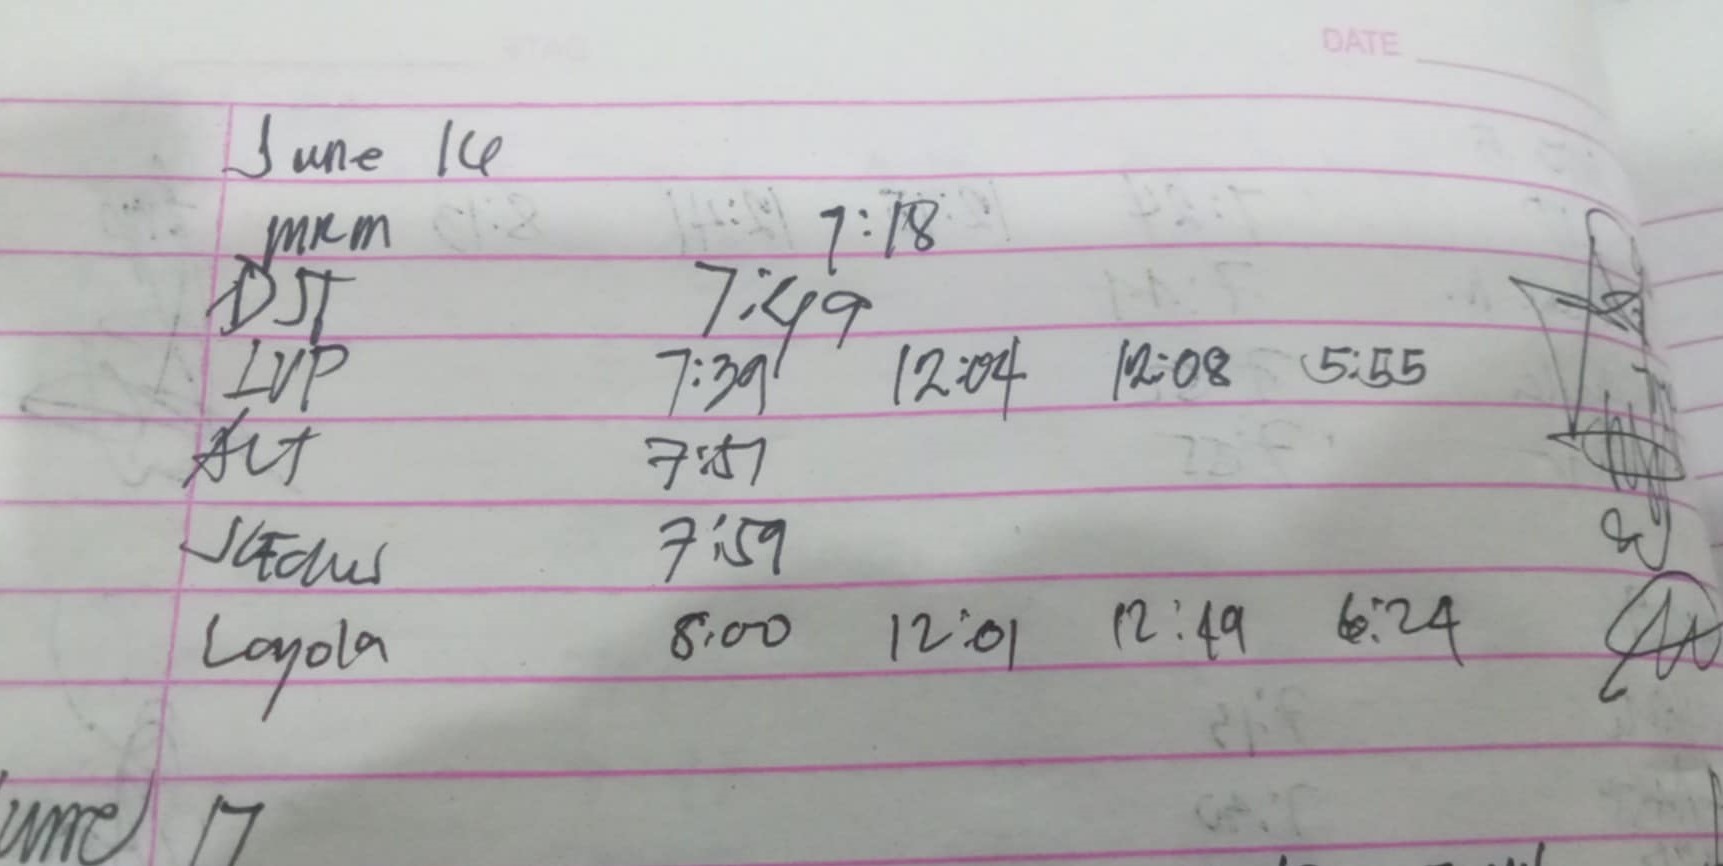 DATE
June 14
MRM 7:18
DST 7:49
LVP 7:39 12:04 12:08 5:55
ALT 7:51
7:59
Loyola 8:00 12:01 12:49 6:24
June 17